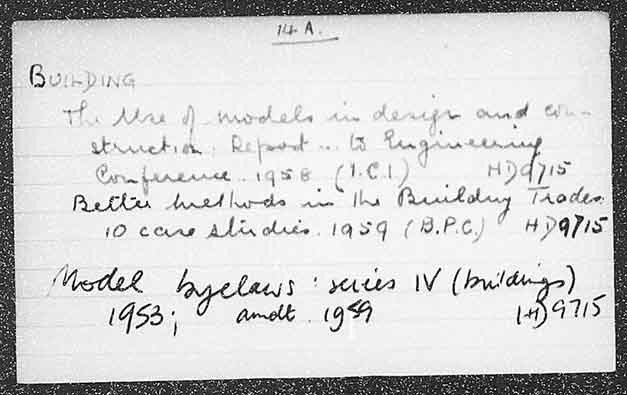 14 A.
BUILDING
The Use of models in design and con-
struction. Report .. to Engineering
Conference. 1958 (I.C.I.) HD9715
Better methods in the Building Trades.
10 case studies. 1959 (B.P.C.) HD9715
Model byelaws : series IV (buildings)
1953; amdt. 1959 HD9715